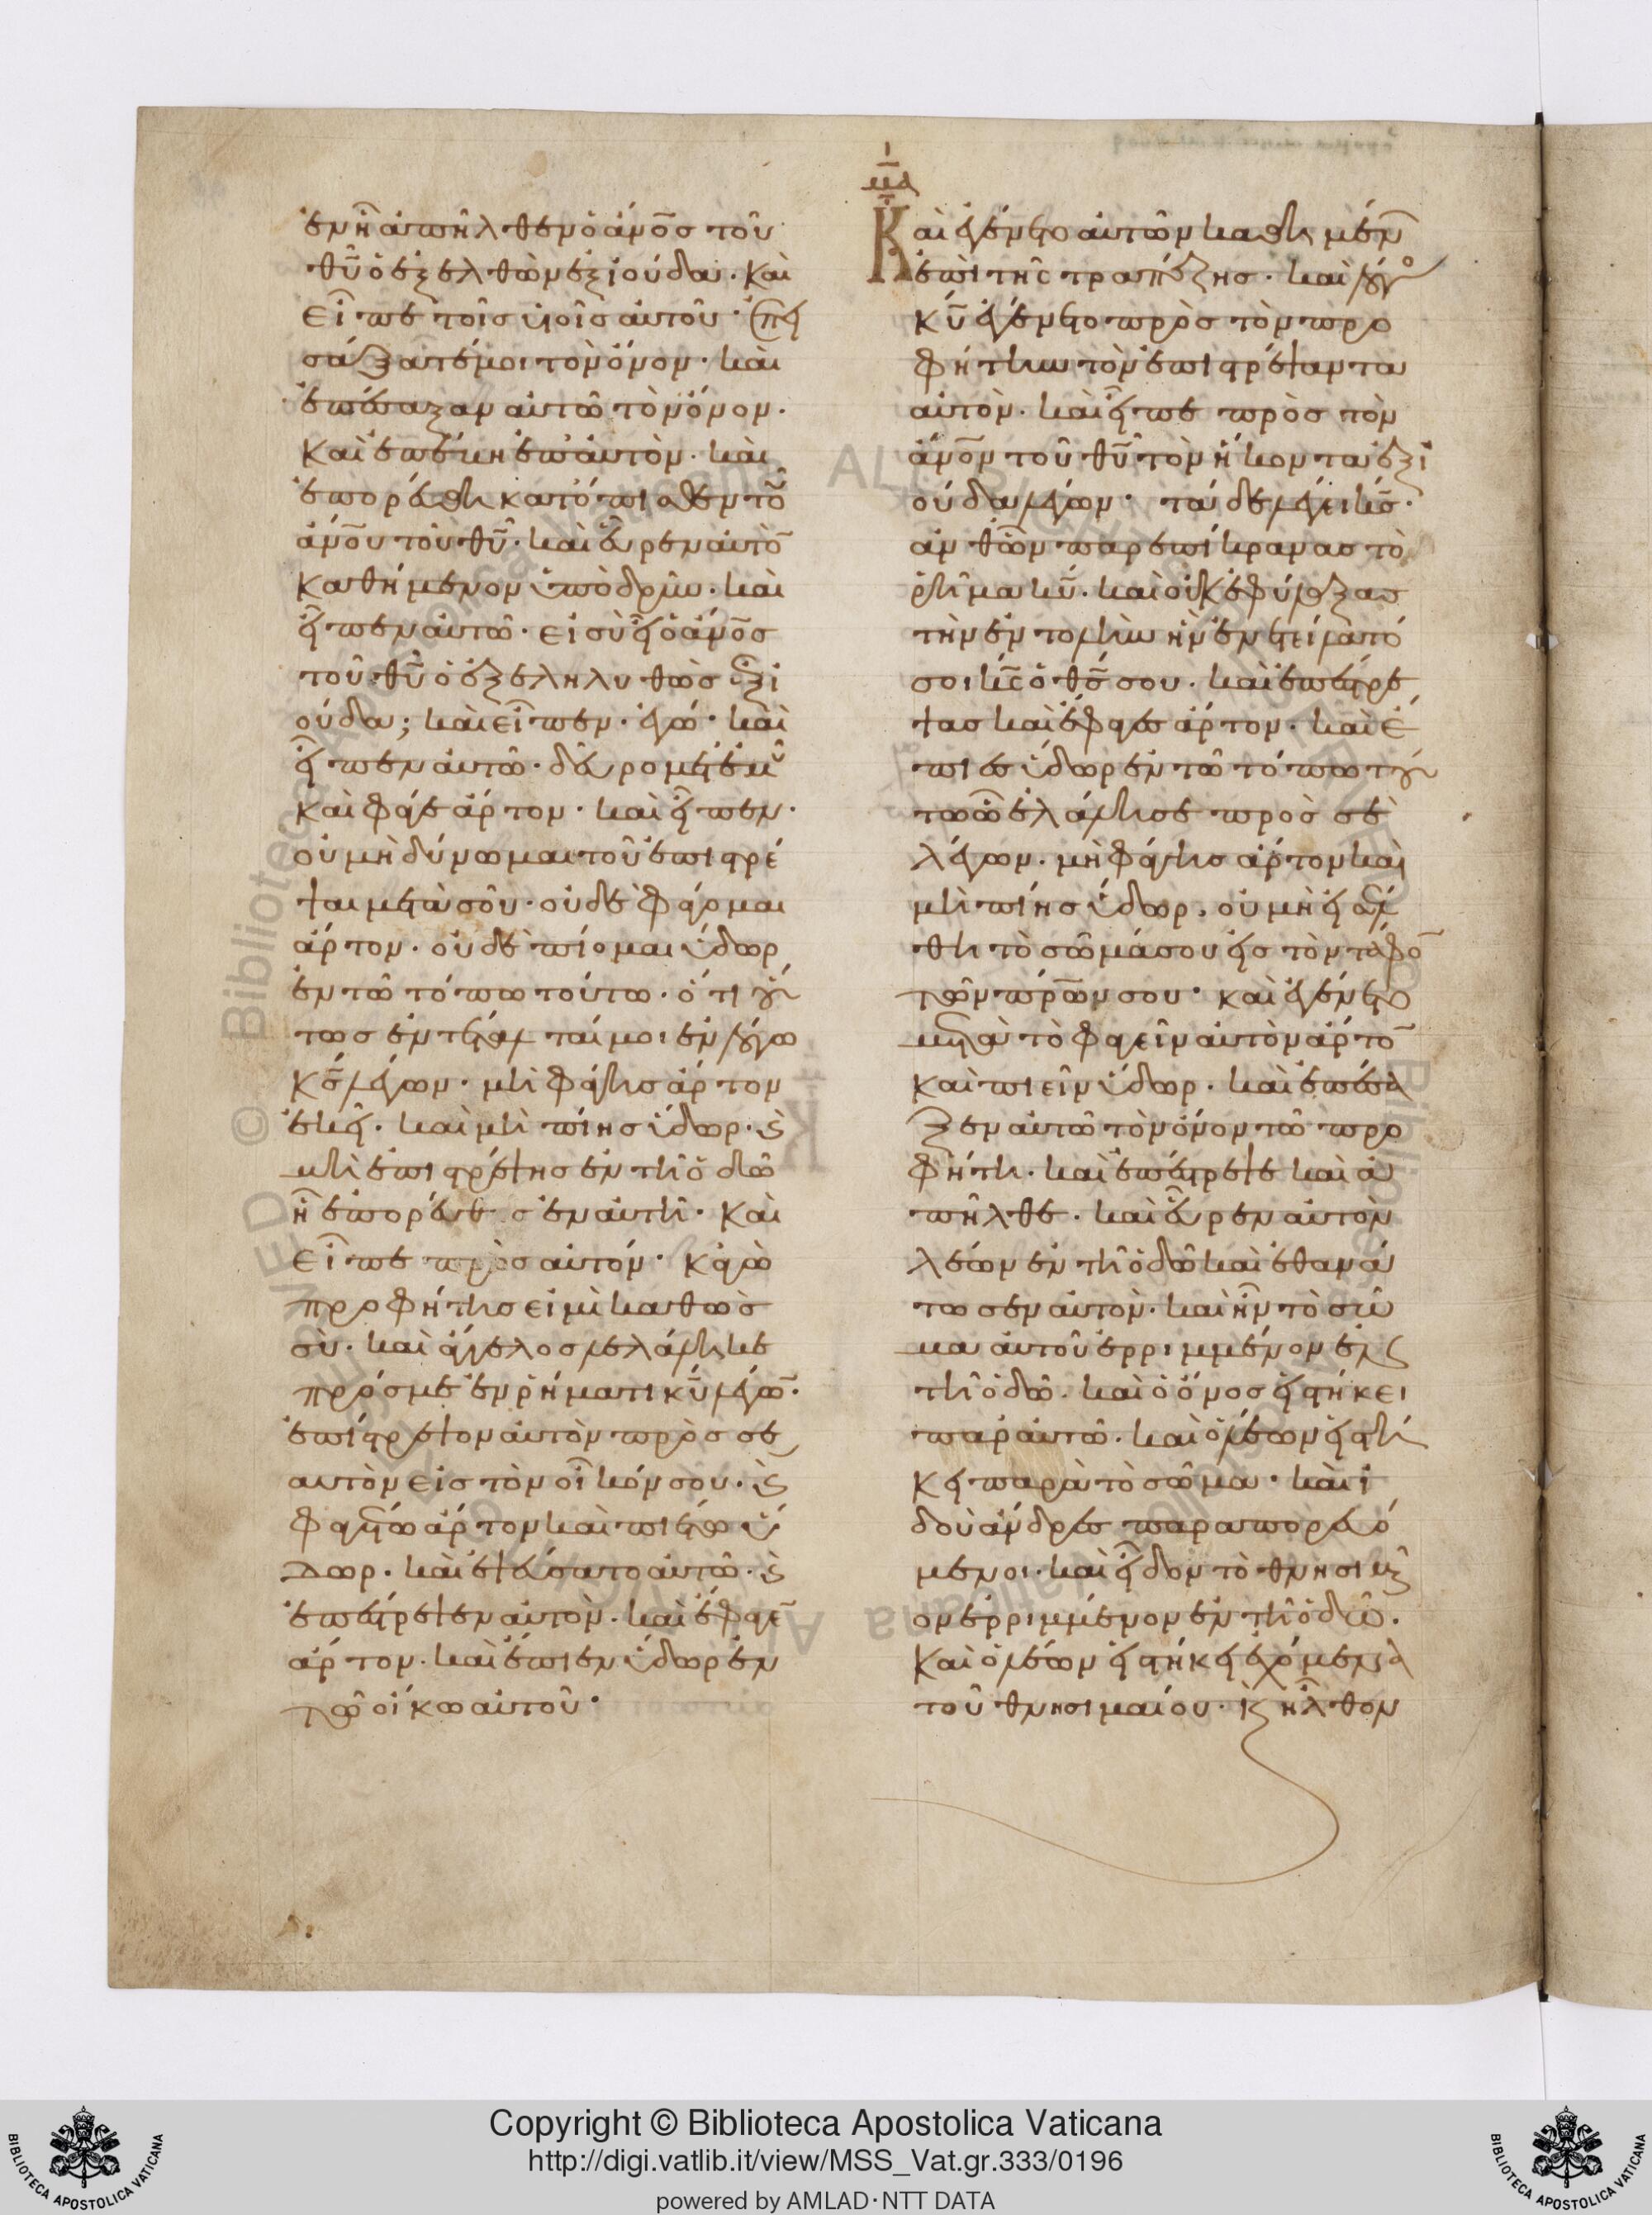 ἐν ἧ ἀπῆλθεν ὁ ἄν̅ο̅σ̅ τοῦ
θ̅υ̅ ὁ ἐξελθὼν ἐξ ἰούδα· Καὶ
εἶπε τοῖς υἱοῖς αὐτοῦ· ἐπι
σάξατέ μοι τὸν ὄνον· καὶ
ἐπέσαξαν αὐτῶ τὸν ὄνον·
Καὶ ἐπέβη ἐπ᾽ αὐτὸν· καὶ
ἐπορεύθη κατόπισθεν τοῦ
ἀν̅ο̅υ̅ τοῦ θ̅υ̅· καὶ εὗρεν αὐτὸ̅
καθήμενον ὑπὸ δρῦν· καὶ
εἶπεν αὐτῶ· εἰ σὺ εἶ ὁ ἄν̅ο̅σ̅
τοῦ θ̅υ̅ ὁ ἐξεληλυθὼς ἐξ ἰ
ούδα; καὶ εἶπεν· ἐγώ· καὶ
εἶπεν αὐτῶ· δεῦρο μετ᾽ ἐμοῦ
καὶ φάγε ἄρτον· καὶ εἶπεν·
οὐ μὴ δύνωμαι τοῦ ἐπιστρέ
ψαι μετὰ σοῦ· οὐδὲ φάγομαι
ἄρτον· οὐδὲ πίομαι ὕδωρ
ἐν τῶ τόπω τούτω· ὅτι οὕ
τως ἐντέταλταί μοι ἐν λόγω
κ̅σ̅ λέγων· μὴ φάγης ἄρτον
ἐκεῖ· καὶ μὴ πίης ὕδωρ· ϗ
μὴ ἐπιστρέψης ἐν τῆ ὁδῶ
ἧ ἐπορεύθης ἐν αὐτῆ· Καὶ
εἶπε πρὸς αὐτόν· κἀγὼ
προφήτης εἰμὶ καθὼς
σὺ· καὶ ἄγγελος λελάληκε
πρός με ἐν ῥήματι κ̅υ̅ λέγω̅·
ἐπίστρεψον αὐτὸν πρὸς σε
αυτὸν εἰς τὸν οἶκόν σου· ϗ
φαγέτω ἄρτον καὶ πιέτω ὕ
δωρ· καὶ ἐψεύσατο αὐτῶ· ϗ
ἐπέστρεψεν αὐτὸν· καὶ ἔφαγε̅
ἄρτον· καὶ ἔπιεν ὕδωρ ἐν
τῶ οἴκω αὐτοῦ·
Καὶ ἐγένετο αὐτῶν καθημέν̅
ἐπὶ τῆς τραπέζης· καὶ λόγο
κ̅υ̅ ἐγένετο πρὸς τὸν προ
φήτην τὸν ἐπιστρέψαντα
αὐτὸν· καὶ εἶπε πρὸς τὸν
ἄν̅ο̅ν̅ τοῦ θ̅υ̅ τὸν ἥκοντα ἐξ ἰ
ούδα λέγων· τάδε λέγει κ̅σ̅·
ἀνθ᾽ ὧν παρεπίκρανας τὸ
ῥῆμα κ̅υ̅· καὶ οὐκ ἐφύλαξας
τὴν ἐντολὴν ἣν ἐνετείλατό
σοι κ̅σ̅ ὁ θ̅σ̅ σου· καὶ ἐπέστρε
ψας καὶ ἔφαγες ἄρτον· καὶ ἔ
πιες ὕδωρ ἐν τῶ τόπω τού
τω ὧ ἐλάλησε πρὸς σὲ
λέγων· μὴ φάγης ἄρτον καὶ
μὴ πίης ὕδωρ· οὐ μὴ εἰσέλ
θη τὸ σῶμά σου εἰς τὸν τάφο̅
τῶν π̅ρ̅ων σου· καὶ ἐγένετο
μετὰ τὸ φαγεῖν αὐτὸν ἄρτο̅
καὶ πιεῖν ὕδωρ· καὶ ἐπέσα
ξεν αὐτῶ τὸν ὄνον τῶ προ
φήτη· καὶ ἐπέστρεψε καὶ ἀ
πῆλθε· καὶ εὗρεν αὐτὸν
λέων ἐν τῆ ὁδῶ καὶ ἐθανά
τωσεν αὐτὸν· καὶ ἦν τὸ σῶ
μα αὐτοῦ ἐρριμμένον ἐν
τῆ ὁδῶ· καὶ ὁ ὄνος εἱστήκει
παρ᾽ αὐτῶ· καὶ ὁ λέων εἱστή
κει παρὰ τὸ σῶμα· καὶ ἰ
δοὺ ἄνδρες παραπορευό
μενοι· καὶ εἶδον τὸ θνησιμαῖ
ον ἐρριμμένον ἐν τῆ ὁδῶ·
Καὶ ὁ λέων εἱστήκει ἐχόμενα
τοῦ θνησιμαίου· ϗ ἦλθον
Copyright © Biblioteca Apostolica Vaticana
http://digi.vatlib.it/view/MSS_Vat.gr.333/0196
powered by AMLAD·NTT DATA
BIBLIOTECA APOSTOLICA VATICANA
BIBLIOTECA APOSTOLICA VATICANA